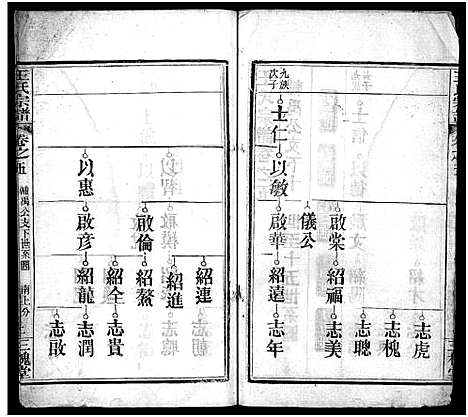 志虎
志槐
志聰
啟棠 紹福 志美
儀公
九族次子 士仁 以敏 啟華 紹遠 志年
紹運
紹進
啟倫 紹鰲
紹全 志貴
以惠 啟彥 紹龍 志潤
志敢
王氏宗譜 卷之五 輔禹公支下世系圖 南上分 三槐堂